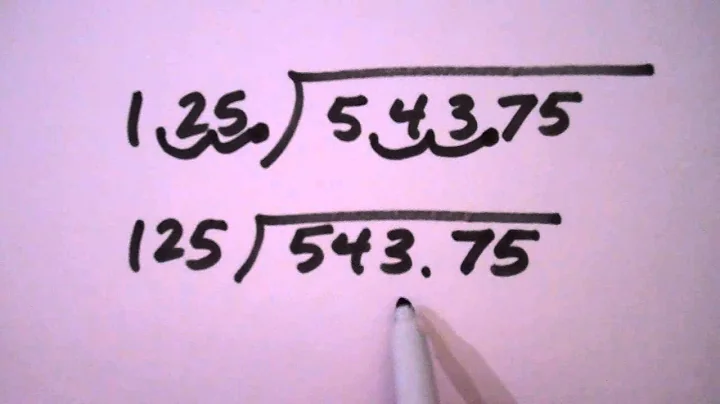 125.)543.75
125)543.75